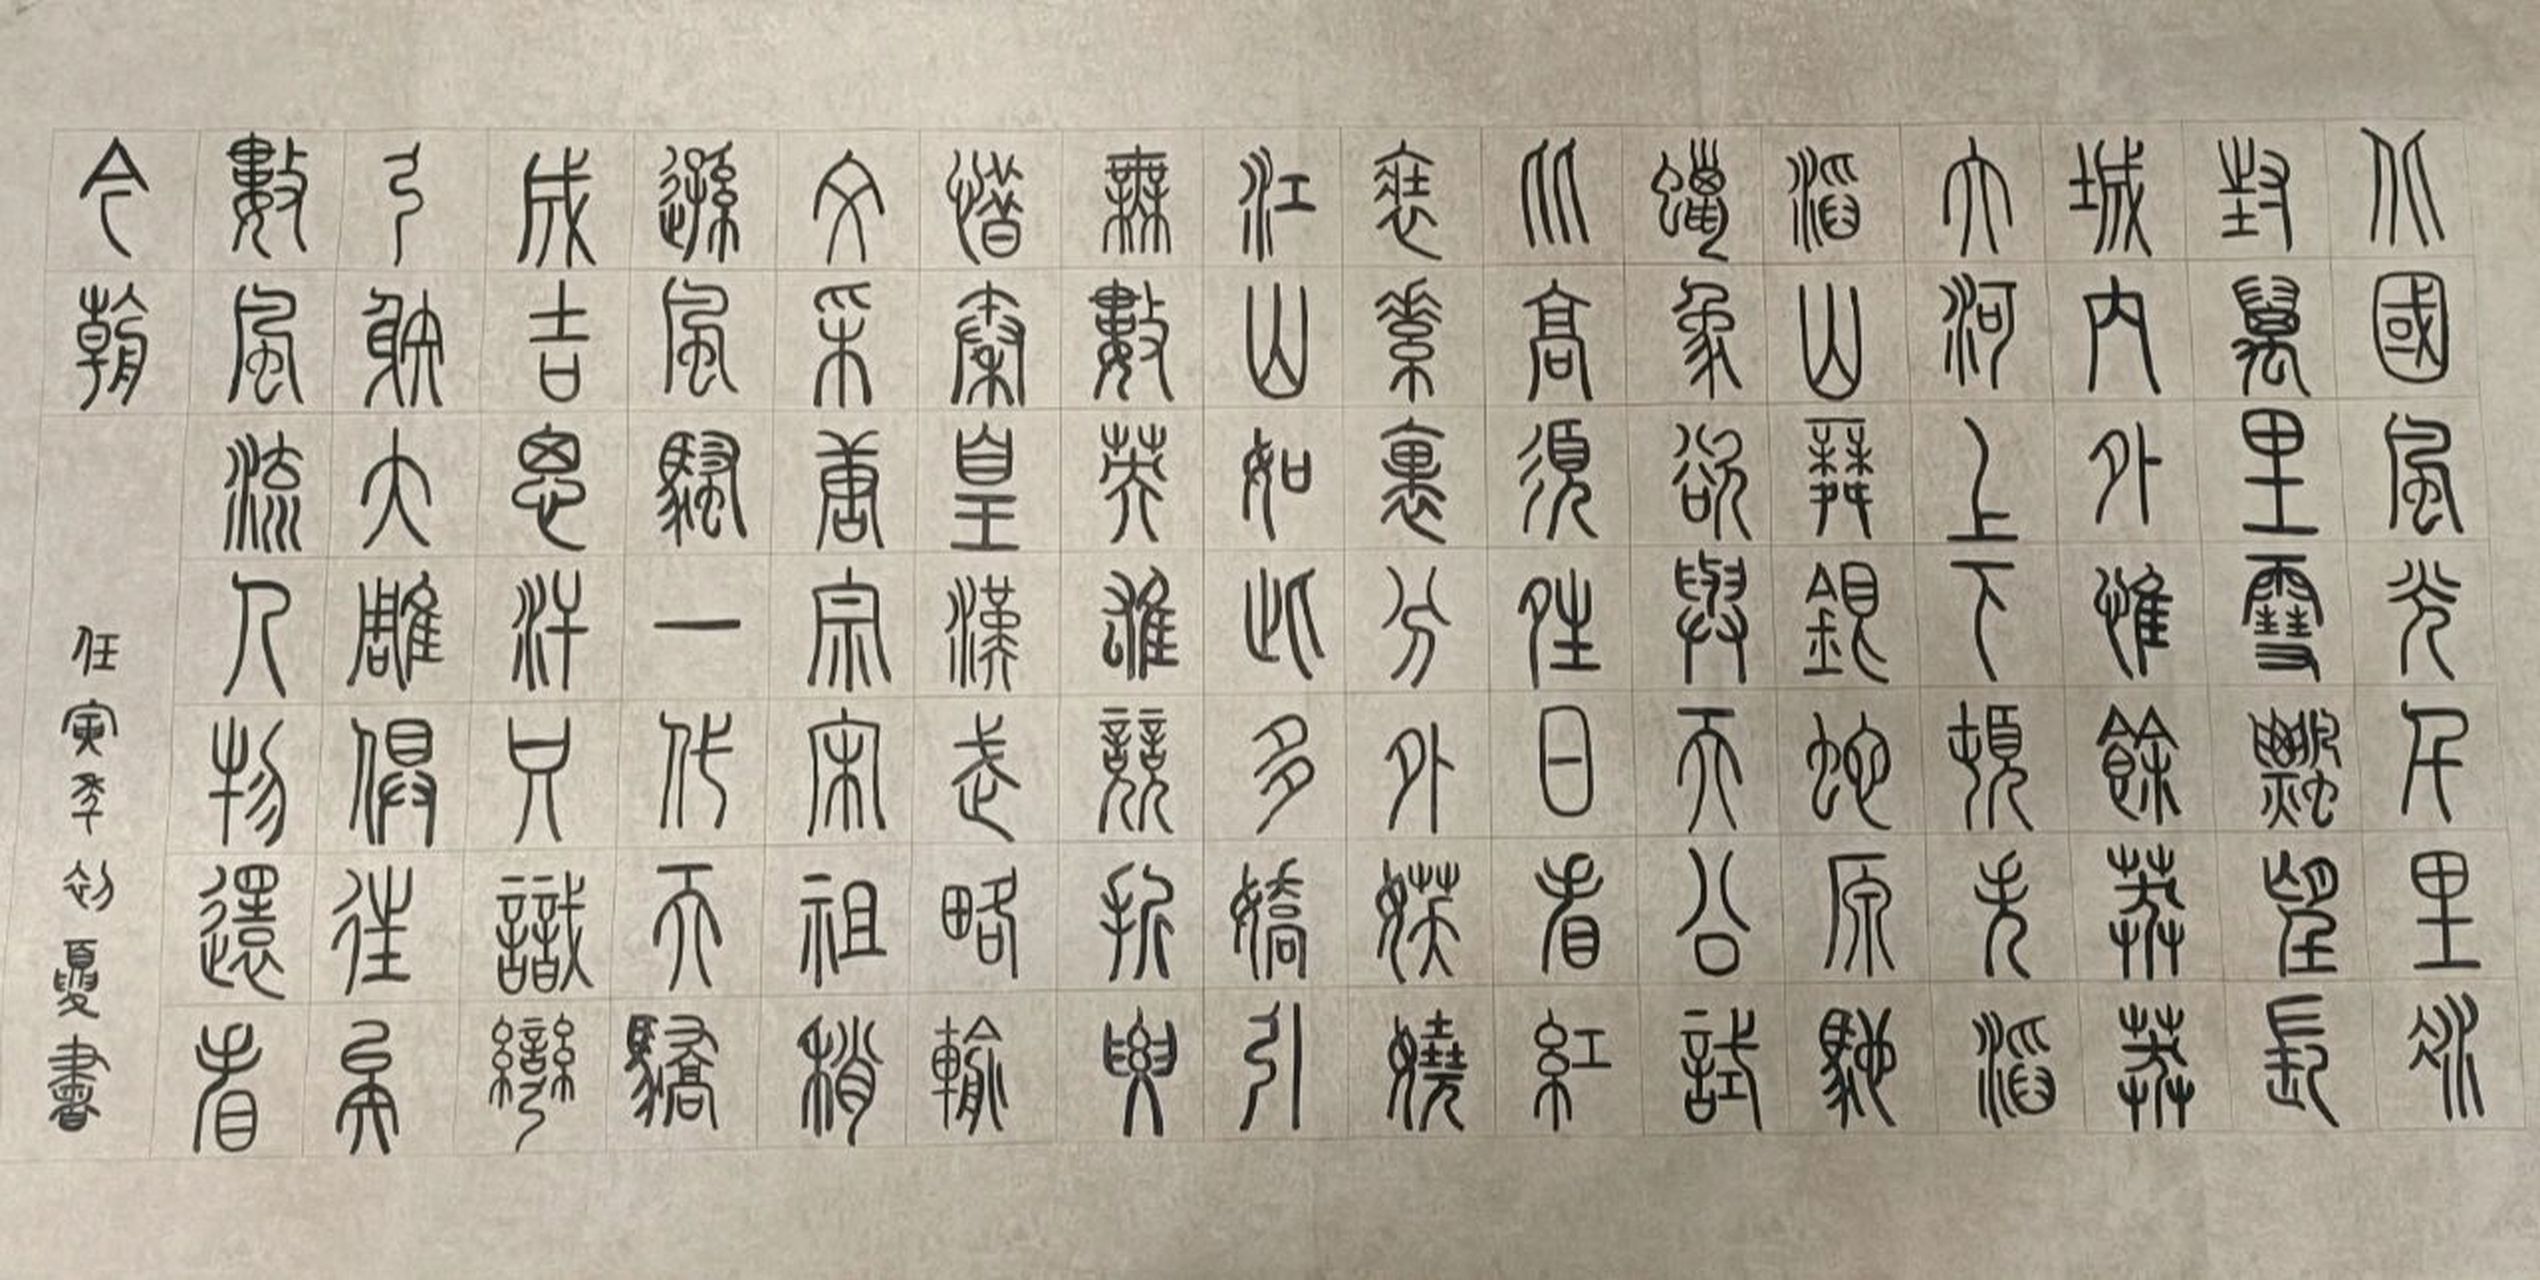 北國風光千里冰
封萬里雪飄望長
城內外惟餘莽莽
大河上下頓失滔
滔山舞銀蛇原馳
蠟象欲與天公試
比高須晴日看紅
裝素裹分外妖嬈
江山如此多嬌引
無數英雄競折腰
惜秦皇漢武略輸
文采唐宗宋祖稍
遜風騷一代天驕
成吉思汗只識彎
弓射大雕俱往矣
數風流人物還看
今朝
任寅年初夏書